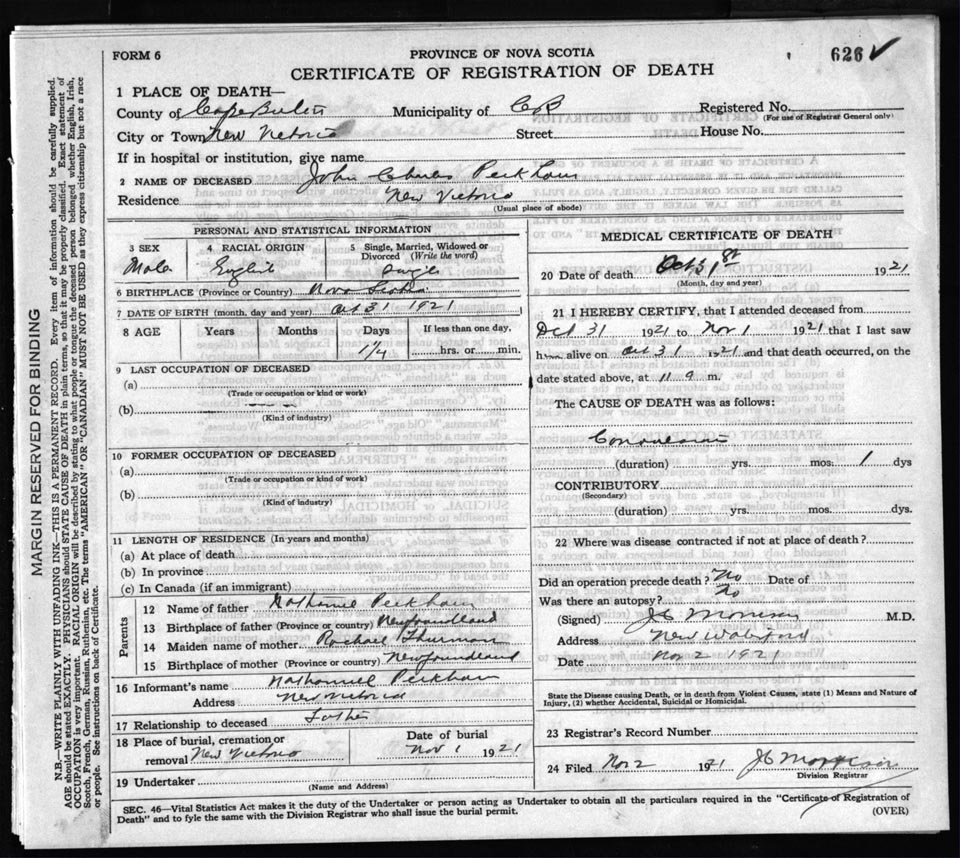 FORM 6
PROVINCE OF NOVA SCOTIA
626 ✓
CERTIFICATE OF REGISTRATION OF DEATH
1 PLACE OF DEATH—
County of Cape Breton Municipality of CB Registered No.
(For use of Registrar General only)
City or Town New Victoria Street House No.
If in hospital or institution, give name
2 NAME OF DECEASED John Charles Peckham
Residence New Victoria
(Usual place of abode)
PERSONAL AND STATISTICAL INFORMATION
3 SEX 4 RACIAL ORIGIN 5 Single, Married, Widowed or Divorced (Write the word)
Male English Single
6 BIRTHPLACE (Province or Country) Nova Scotia
7 DATE OF BIRTH (month, day and year) Oct 31 1921
8 AGE Years Months Days If less than one day,
1/4 hrs. or min.
9 LAST OCCUPATION OF DECEASED
(a)
(Trade or occupation or kind or work)
(b)
(Kind of industry)
10 FORMER OCCUPATION OF DECEASED
(a)
(Trade or occupation or kind of work)
(b)
(Kind of industry)
11 LENGTH OF RESIDENCE (In years and months)
(a) At place of death
(b) In province
(c) In Canada (if an immigrant)
Parents
12 Name of father Nathaniel Peckham
13 Birthplace of father (Province or country) Newfoundland
14 Maiden name of mother Rachael Thurman
15 Birthplace of mother (Province or country) Newfoundland
16 Informant's name Nathanuel Peckham
Address New Victoria
17 Relationship to deceased Father
18 Place of burial, cremation or removal New Victoria
Date of burial
Nov 1 1921
19 Undertaker
(Name and Address)
MEDICAL CERTIFICATE OF DEATH
20 Date of death Oct 31st 1921
(Month, day and year)
21 I HEREBY CERTIFY, that I attended deceased from
Oct 31 1921 to Nov 1 1921 that I last saw
him alive on Oct 31 1921 and that death occurred, on the
date stated above, at 11 9 m.
The CAUSE OF DEATH was as follows:
Convulsions
(duration) yrs. mos. 1 dys
CONTRIBUTORY
(Secondary)
(duration) yrs. mos. dys.
22 Where was disease contracted if not at place of death?
Did an operation precede death? No Date of
Was there an autopsy? No
(Signed) JC Morrison M.D.
Address New Waterford
Date Nov 2 1921
State the Disease causing Death, or in death from Violent Causes, state (1) Means and Nature of
Injury, (2) whether Accidental, Suicidal or Homicidal.
23 Registrar's Record Number
24 Filed Nov 2 1921 JC Morrison
Division Registrar
SEC. 46—Vital Statistics Act makes it the duty of the Undertaker or person acting as Undertaker to obtain all the particulars required in the "Certificate of Registration of
Death" and to fyle the same with the Division Registrar who shall issue the burial permit.
(OVER)
MARGIN RESERVED FOR BINDING
N.B.—WRITE PLAINLY WITH UNFADING INK—THIS IS A PERMANENT RECORD. Every item of information should be carefully supplied.
AGE should be stated EXACTLY. PHYSICIANS should STATE CAUSE OF DEATH in plain terms, so that it may be properly classified. Exact statement of
OCCUPATION is very important. RACIAL ORIGIN will be described by stating to what people or tongue the deceased person belonged whether English, Irish,
Scotch, French, German, Russian, Ruthenian, etc. The terms "AMERICAN" OR "CANADIAN" MUST NOT BE USED as they express citizenship but not a race
or people. See instructions on back of Certificate.